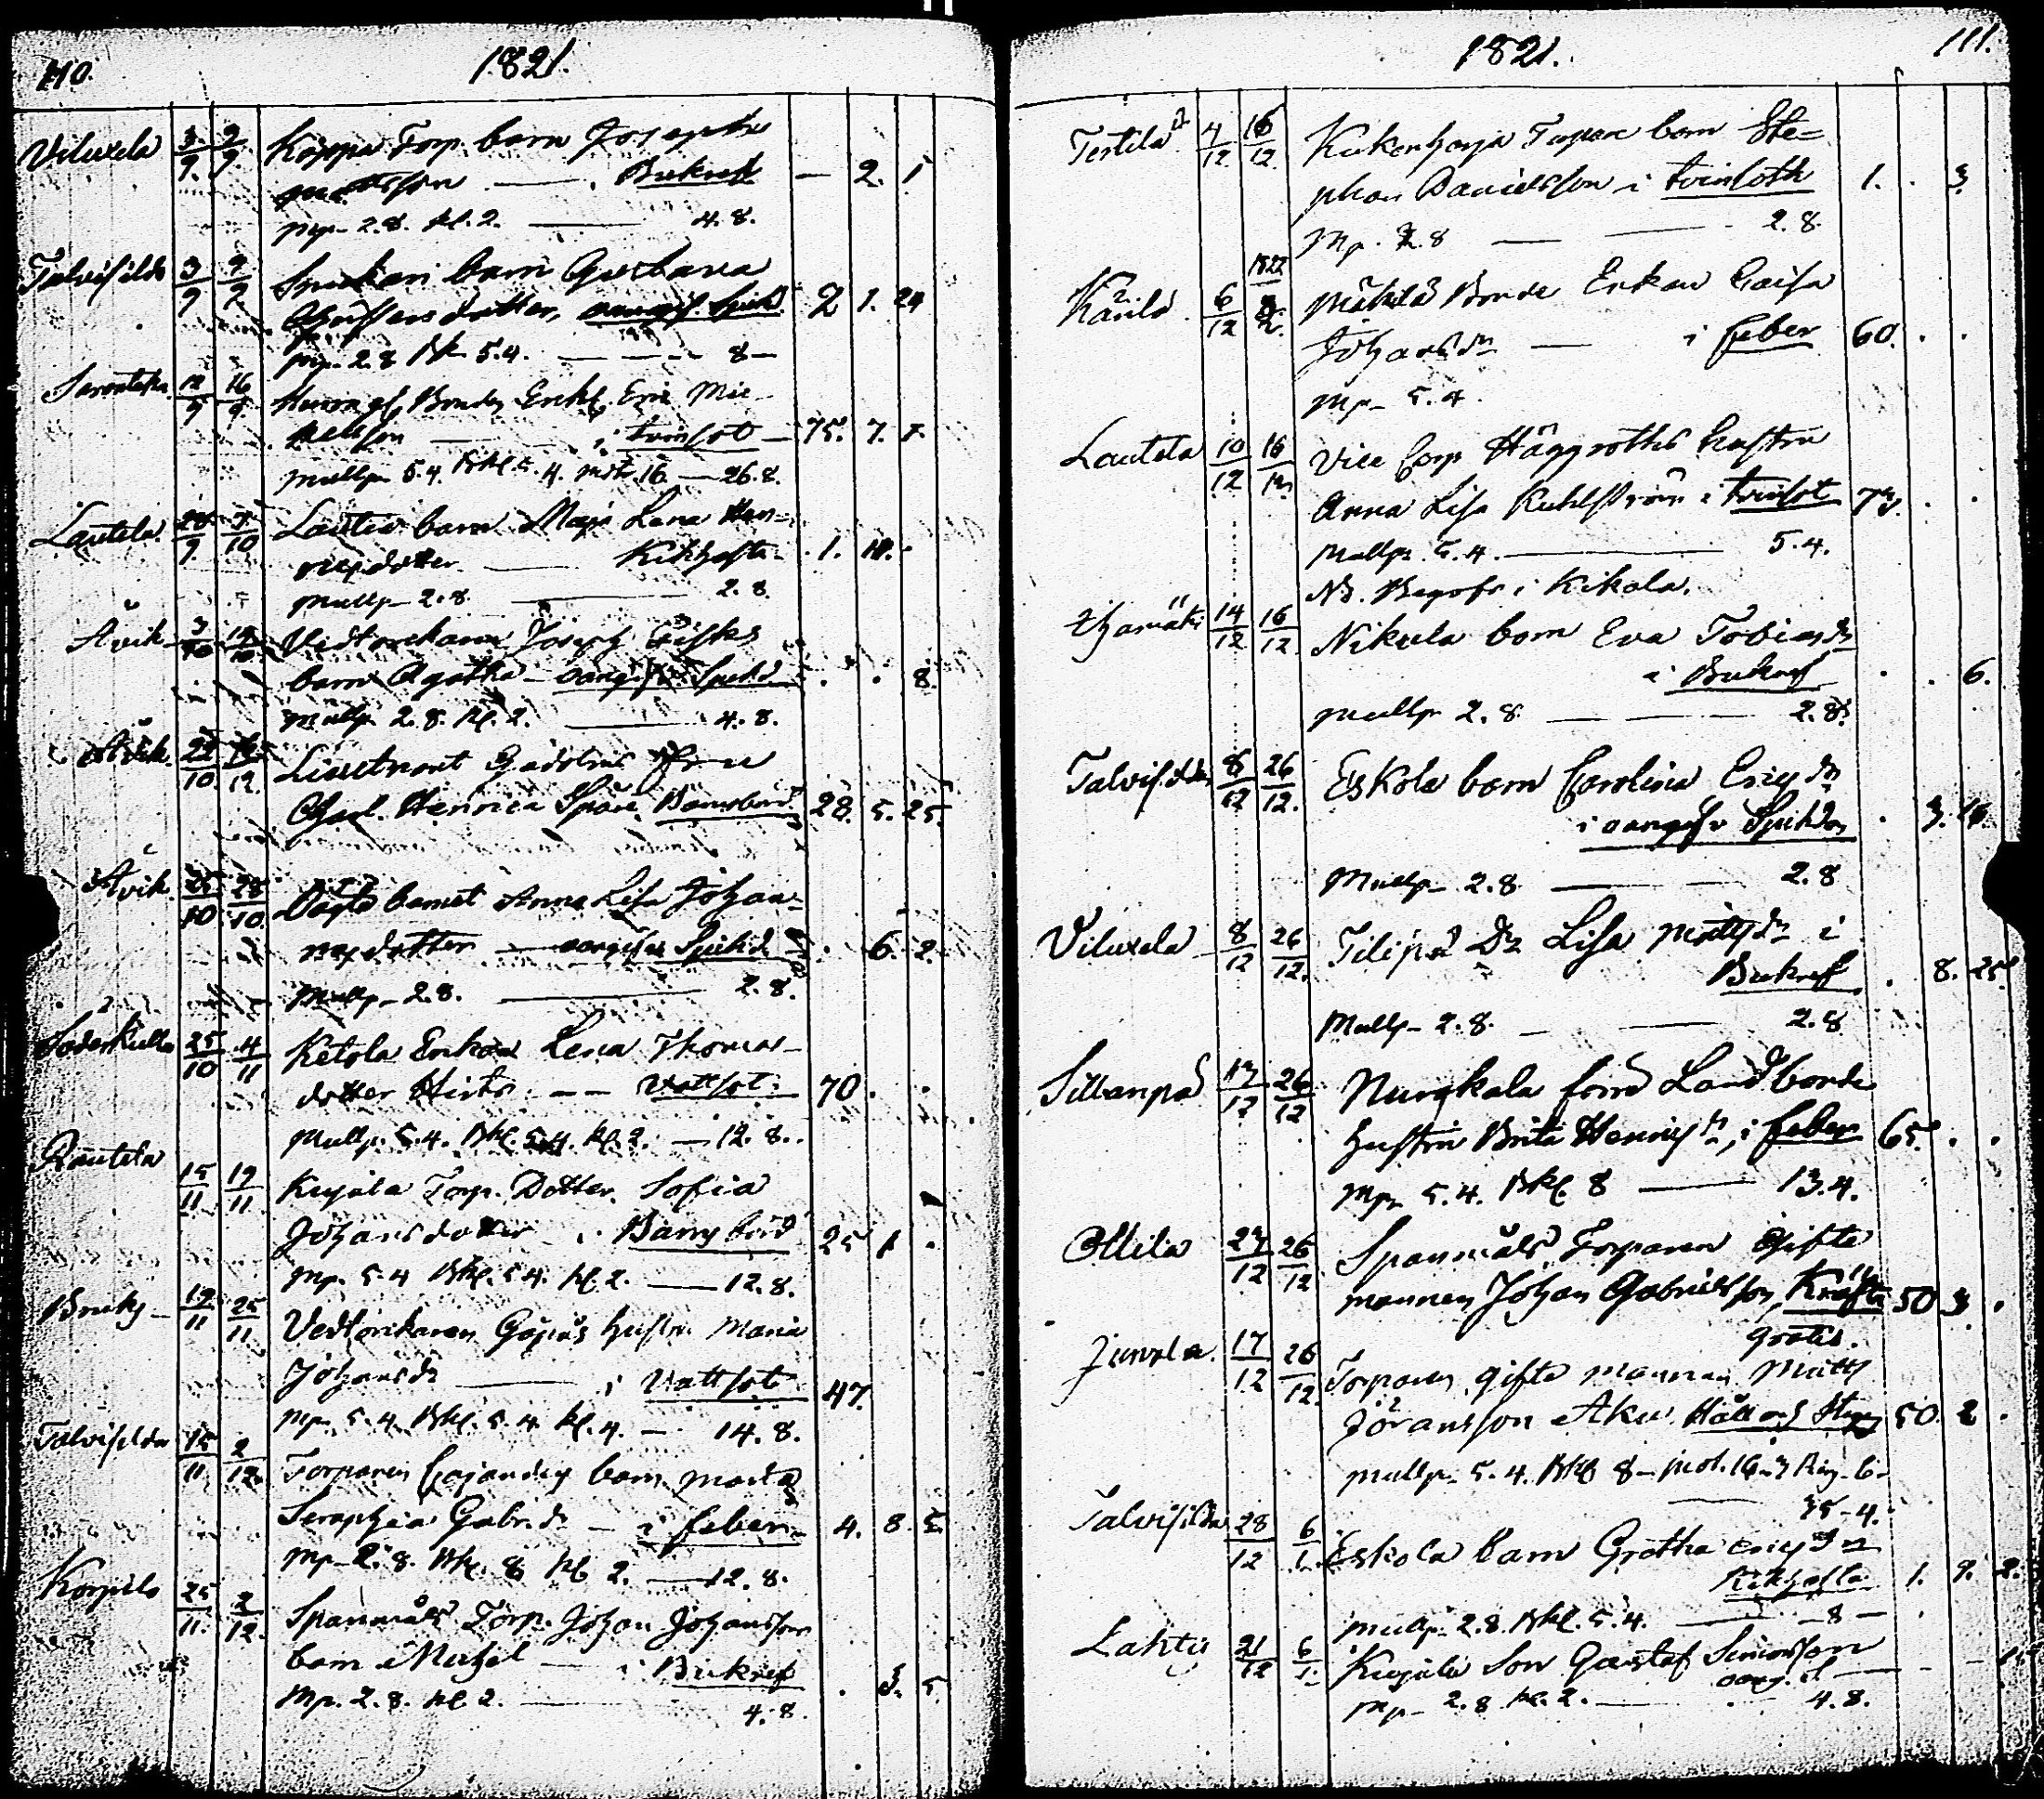 110.
1821.
Viluxela 3/9 9/9 Koppa Torp. barn Joseph
Mattsson — Bukref — 2. 1
Mp. 2.8. kl. 2. — 4.8.
Talvisilda 3/9 9/9 barn Gustava
Gustafsdotter, oangif. Sjukd. 2 1. 24
Mp. 2.8 Bkl. 5.4. — 8 —
12/9 16/9 Bondes Enkl. Eric Mic-
kelsson — i tvinsot — 75. 7.
Mullp. 5.4. Bkl. 5.4. mot. 16 — 26.8.
Lautela 7/10 barn Maja Lena Hen-
ricsdotter — Kikhosta . 1. .
Mullp. 2.8. — 2.8.
Åvik Joseph
barn Agatha — oangifven Sjukd. . . 8.
Mullp. 2.8. kl. 2. — 4.8.
Åvik 22/10 Lieutnant Gadolins Fru
Charl. Henrica Spåre Barnsbörd 28. 5. 25.
Åvik 25/10 28/10 barnet Anna Lisa Johan-
nesdotter — oangifven Sjukd. . 6. 2.
Mullp. 2.8. — 2.8.
Söderkulla 25/10 4/11 Ketola Enkan Lena Thomas-
dotter — Vattsot. 70 . .
Mullp. 5.4. Bkl. 5.4. kl. 2. — 12.8.
Rautela
15/11 19/11 Kujala Torp. Dotter Sofia
Johansdotter i Barnsbörd 25 1 .
Mp. 5.4 Bkl. 5.4. kl. 2. — 12.8.
Bruks 19/11 25/11 hustru Maria
Johansdr — i Vattsot 47.
Mp. 5.4. Bkl. 5.4. kl. 4. — 14.8.
Talvisilda 15/11 2/12 Torparen Cajanders barn
Seraphia Gabr.dr — i feber 4. 8. 5.
Mp. 2.8. Bkl. 8 kl. 2. — 12.8.
Korpila 25/11 2/12 Spanmåls Torp. Johan Johansson
barn Michel — i Bukref . 3. 5.
Mp. 2.8. kl. 2. — 4.8.
1821.
111.
Tertilä 4/12 16/12 Kukonharja Torpare barn Ste-
phan Danielsson i tvinsoth 1. . 3.
Mp. 2.8 — 2.8.
1822
Kärilä 6/12 Mäkelä Bonde Enkan Caisa
Johansdr — i feber 60. . .
Mp. 5.4.
Lautela 10/12 16/12 Vice Corp. Häggroths hustru
Anna Lisa Kuhlström i tvinsot 73. . .
Mullp. 5.4. — 5.4.
NB. Begrofs i Kikala.
14/12 16/12 Nikula barn Eva Tobiasdr
i Bukref . . 6.
Mullp. 2.8. — 2.8.
Talvisilda 8/12 26/12 Eskola barn Carolina Ericsdr
i oangifv. Sjukdom . 3. 14.
Mullp. 2.8. — 2.8
Viluxela 8/12 26/12 Filipä Dr Lisa Mattsdr i
Bukref . 8. 25.
Mullp. 2.8. — 2.8
Sillanpä 17/12 26/12 Nurkkala förra Landbonde
hustru Brita Henricsdr, i feber 65. . .
Mp. 5.4. Bkl. 8 — 13.4.
Ollila 23/12 26/12 Spanmåls Torparen Gifte
mannen Johan Gabrielsson, Kräfta 50 3 .
gratis.
Junnola 17/12 26/12 Torparen gifte mannen Matts
Jöransson Aku Håll och Styng 50. 2 .
Mullp. 5.4. Bkl. 8 — mot. 16 — Ring. 6 —
35-4.
Talvisilda 28/12 6/1 Eskola barn Gretha Ericsdr
Kikhosta 1. 9. 2.
Mullp. 2.8. Bkl. 5.4. — 8 —
Lahtis 6/1 Kujala Son Gustaf Simonsson
Mp. 2.8 kl. 2. — 4.8.